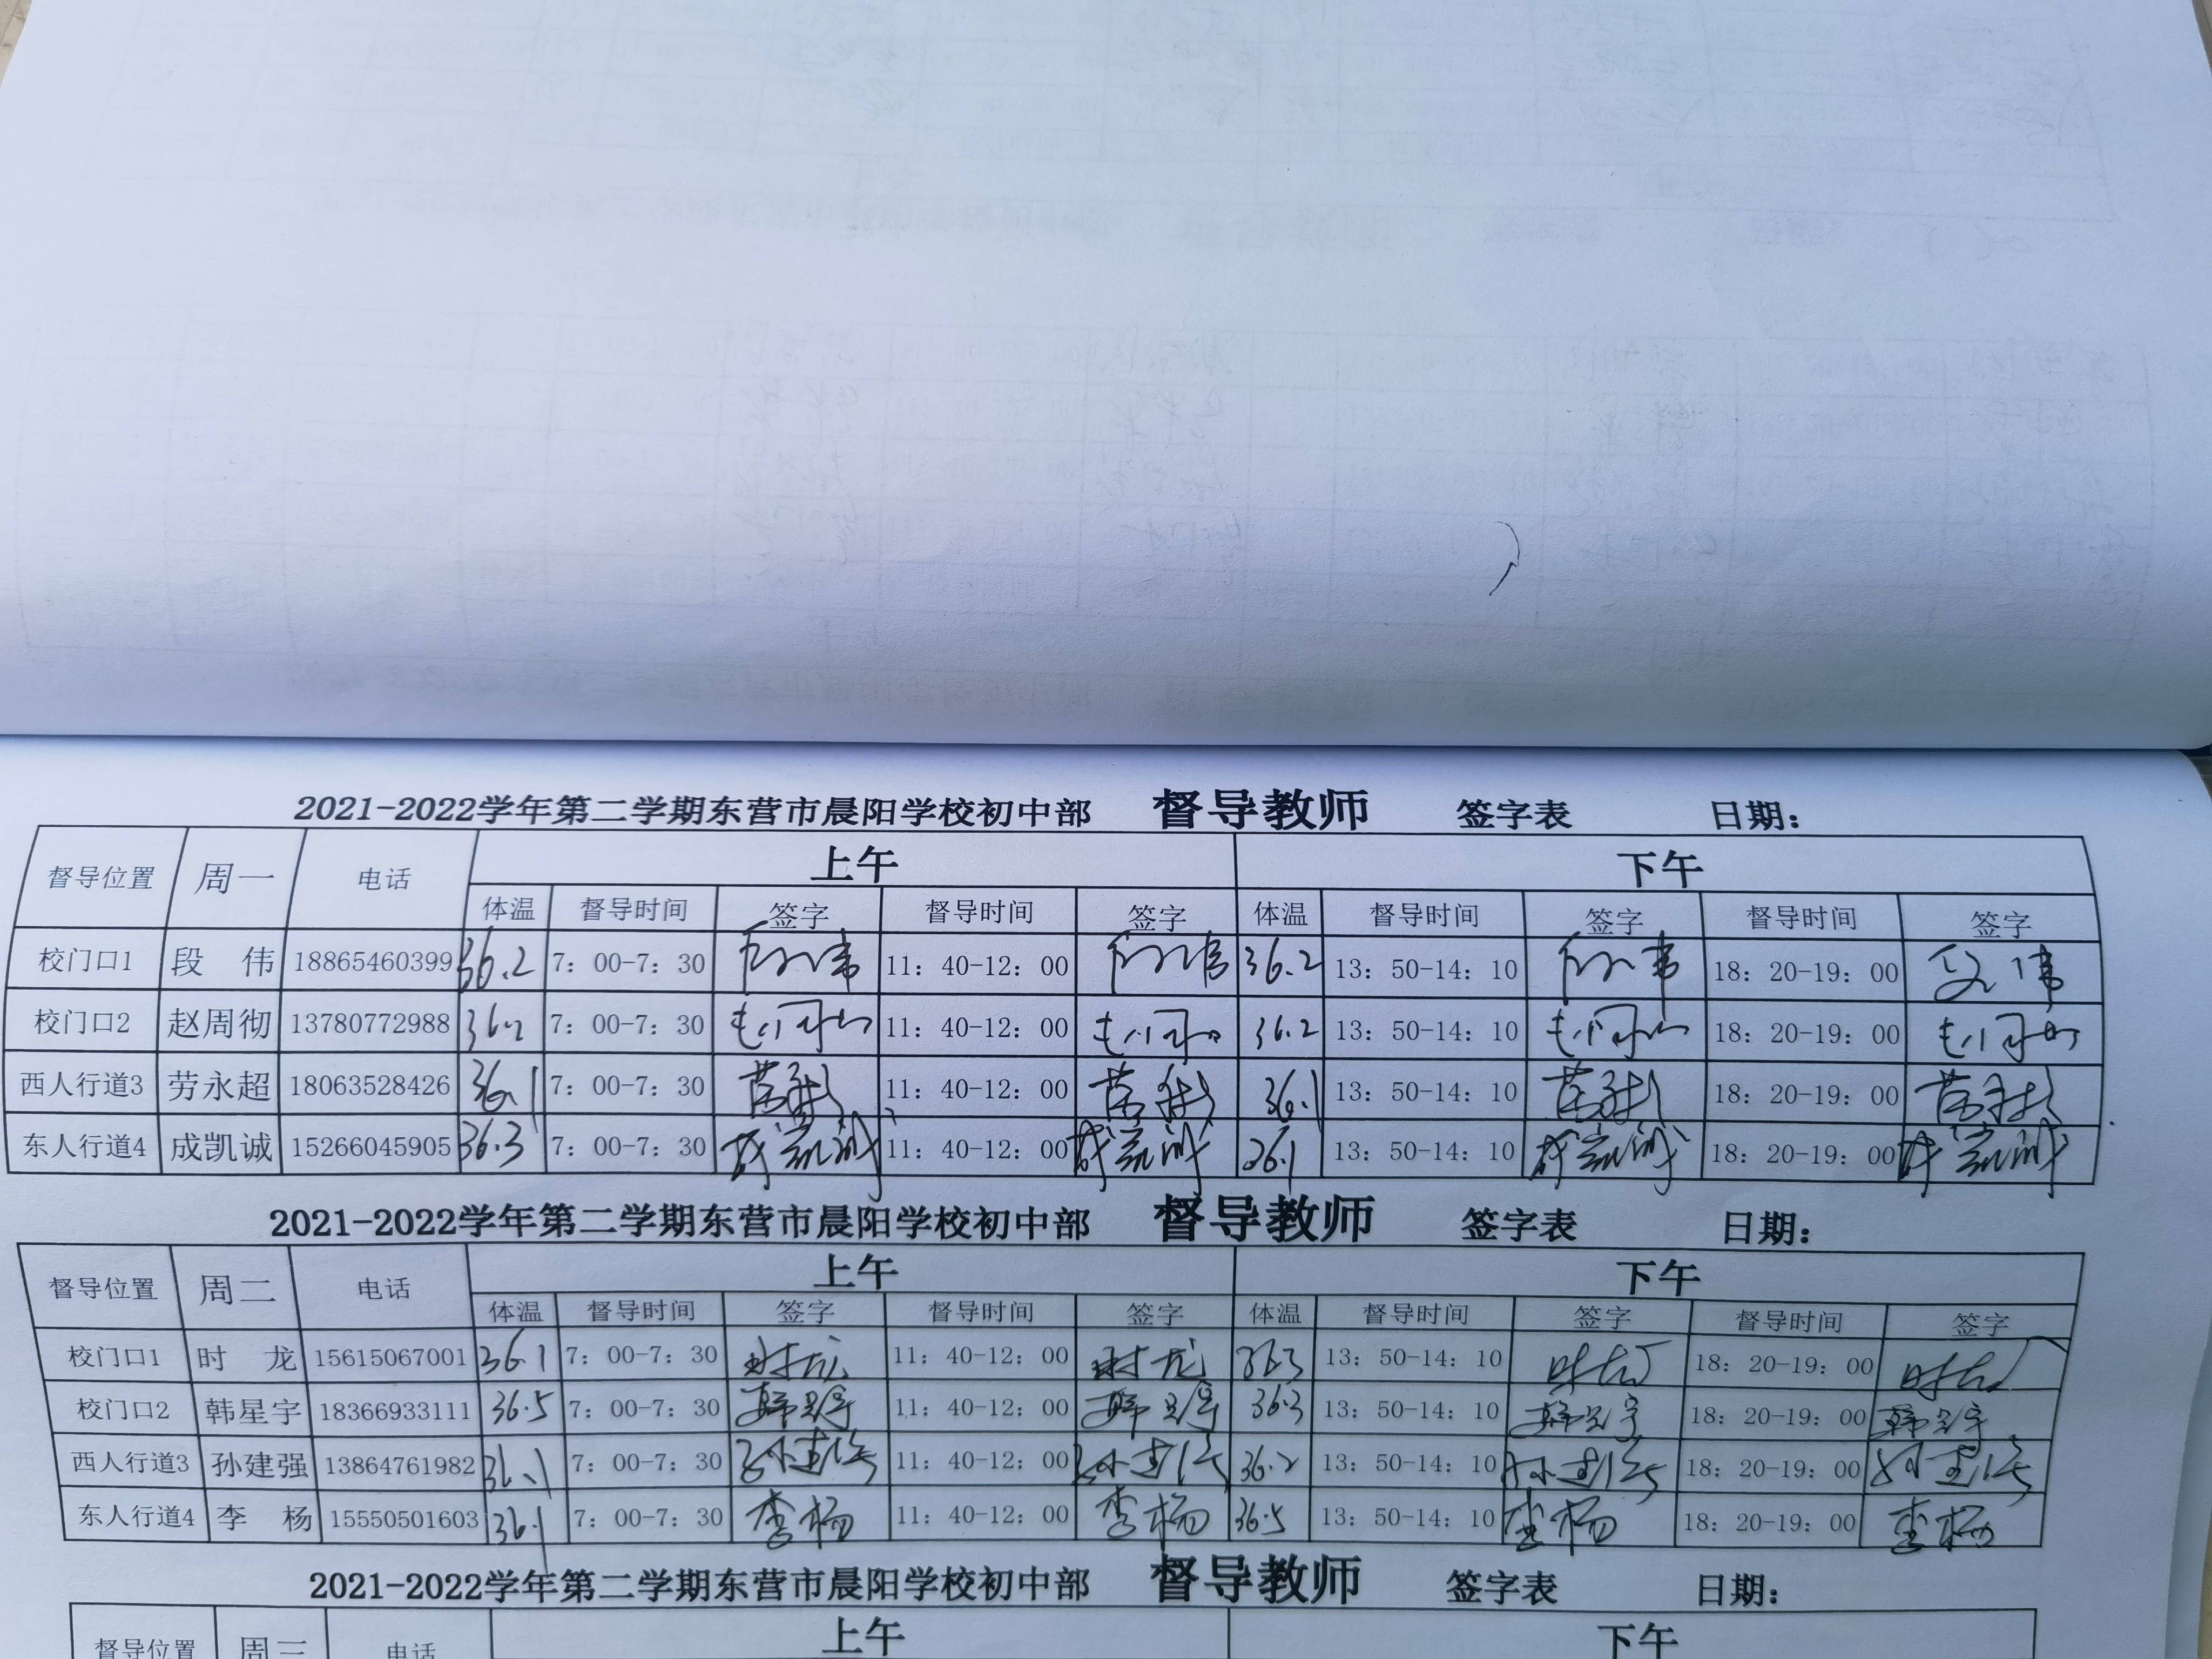 2021-2022学年第二学期东营市晨阳学校初中部 督导教师 签字表 日期：
督导位置 周一 电话 上午 下午
体温 督导时间 签字 督导时间 签字 体温 督导时间 签字 督导时间 签字
校门口1 段 伟 18865460399 36.2 7：00-7：30 段伟 11：40-12：00 段伟 36.2 13：50-14：10 段伟 18：20-19：00 段伟
校门口2 赵周彻 13780772988 36.2 7：00-7：30 11：40-12：00 36.2 13：50-14：10 18：20-19：00
西人行道3 劳永超 18063528426 36.1 7：00-7：30 劳永超 11：40-12：00 劳永超 36.1 13：50-14：10 劳永超 18：20-19：00 劳永超
东人行道4 成凯诚 15266045905 36.3 7：00-7：30 成凯诚 11：40-12：00 成凯诚 36.1 13：50-14：10 成凯诚 18：20-19：00 成凯诚
2021-2022学年第二学期东营市晨阳学校初中部 督导教师 签字表 日期：
督导位置 周二 电话 上午 下午
体温 督导时间 签字 督导时间 签字 体温 督导时间 签字 督导时间 签字
校门口1 时 龙 15615067001 36.1 7：00-7：30 时龙 11：40-12：00 时龙 36.3 13：50-14：10 时龙 18：20-19：00 时龙
校门口2 韩星宇 18366933111 36.5 7：00-7：30 韩星宇 11：40-12：00 韩星宇 36.3 13：50-14：10 韩星宇 18：20-19：00 韩星宇
西人行道3 孙建强 13864761982 36.1 7：00-7：30 孙建强 11：40-12：00 孙建强 36.2 13：50-14：10 孙建强 18：20-19：00 孙建强
东人行道4 李 杨 15550501603 36.1 7：00-7：30 李杨 11：40-12：00 李杨 36.5 13：50-14：10 李杨 18：20-19：00 李杨
2021-2022学年第二学期东营市晨阳学校初中部 督导教师 签字表 日期：
督导位置 周三 电话 上午 下午